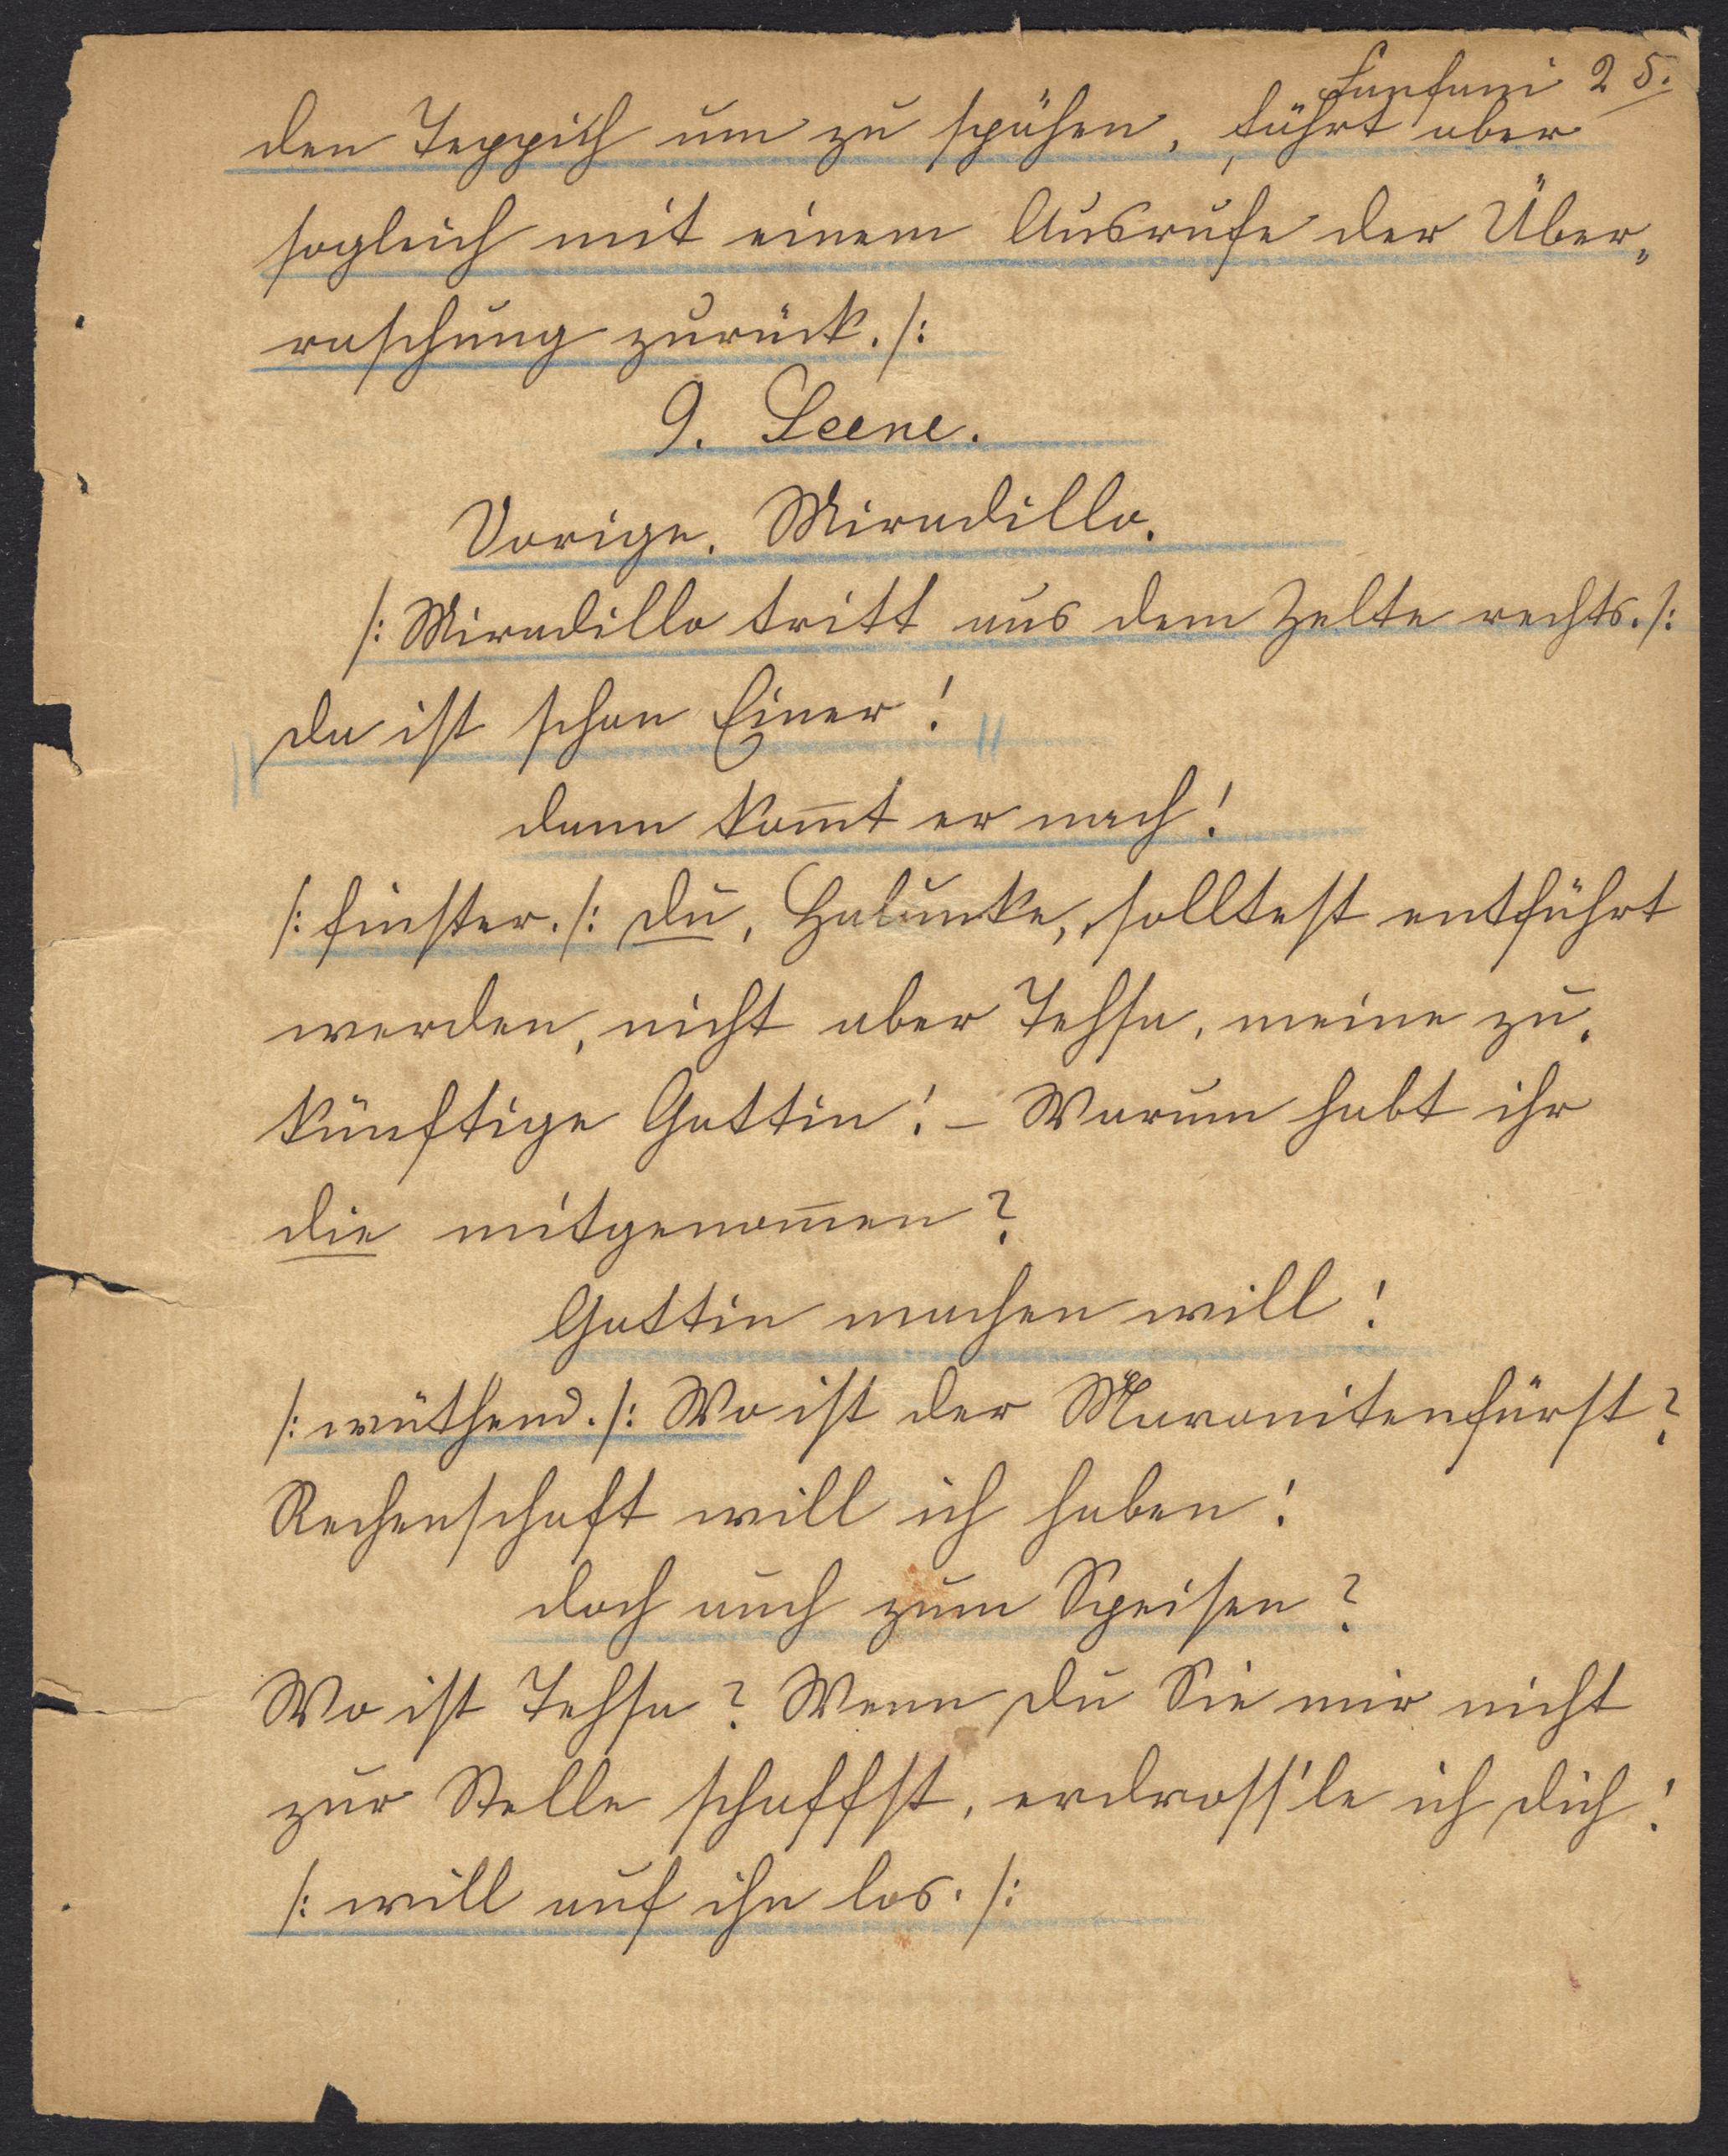 Fanfani 25.
den Teppich um zu spähen, fährt aber
sogleich mit einem Ausrufe der Über„
raschung zurück. /:
9. Scene.
Vorige. Miradillo.
/: Miradillo tritt aus dem Zelte rechts. /:
Da ist schon Einer!
dann kom̅t er nach!
/: finster. /: Du, Halunke, solltest entführt
werden, nicht aber Tessa, meine zu„
künftige Gattin! – Warum habt ihr
die mitgenom̅en?
Gattin machen will!
/: wüthend. /: Wo ist der Maronitenfürst?
Rechenschaft will ich haben!
doch auch zum Speisen?
Wo ist Tessa? Wenn Du Sie mir nicht
zur Stelle schaffst, erdross'le ich Dich!
/: will auf ihn los. /: